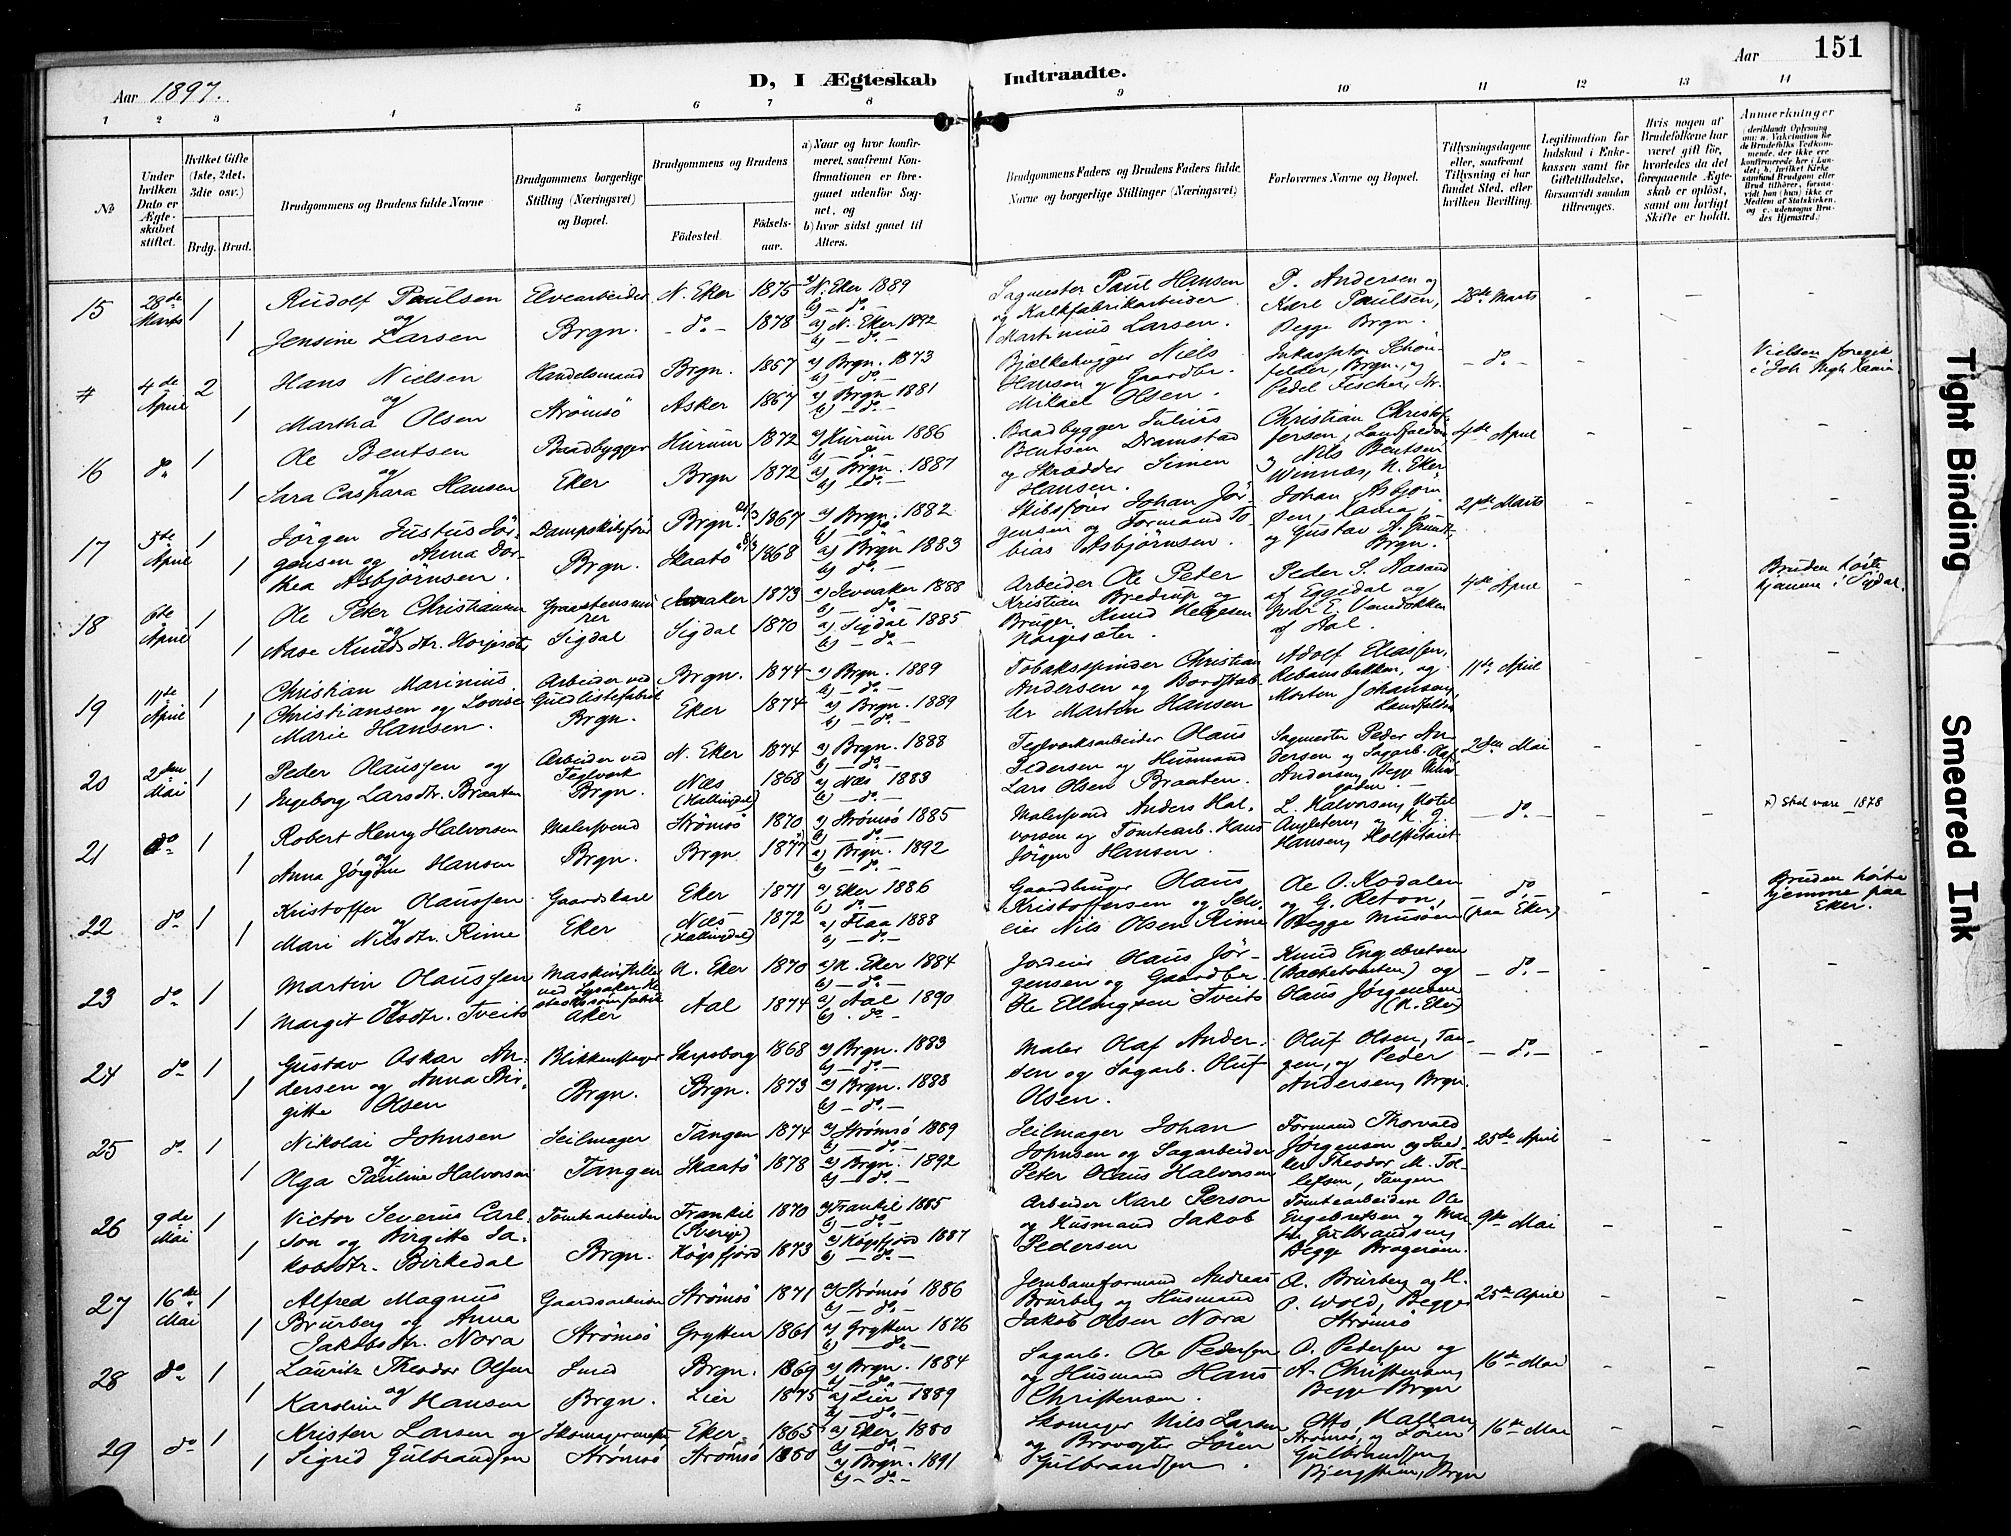 Aar 1897.
D, I Ægteskab Indtraadte.
Aar 151
1 2 3 4 5 6 7 8 9 10 11 12 13 14
№
Under hvilken Dato er Ægteskabet stiftet.
Hvilket Gifte (1ste, 2det, 3die osv.)
Brdg. Brud.
Brudgommens og Brudens fulde Navne
Brudgommens borgerlige Stilling (Næringsvei) og Bopæl.
Brudgommens og Brudens
Födested. Födselsaar.
a) Naar og hvor konfirmeret, saafremt Konfirmationen er foregaaet udenfor Sognet, og
b) hvor sidst gaaet til Alters.
Brudgommens Faders og Brudens Faders fulde Navne og borgerlige Stillinger (Næringsvei)
Forlovernes Navne og Bopæl.
Tillysningsdagene eller, saafremt Tillysning ei har fundet Sted, efter hvilken Bevilling.
Legitimation for Indskud i Enkekassen samt for Giftetilladelse, forsaavidt saadan tiltrænges.
Hvis nogen af Brudefolkene har været gift för, hvorledes da det foregaaende Ægteskab er oplöst, samt om lovligt Skifte er holdt.
Anmærkninger
15 28de Marts 1 1 Rudolf Paulsen og Jensine Larsen Elvearbeider Brgn. N. Eker 1875 a) N. Eker 1889 b) – do. – do. – 1878 a) N. Eker 1892 b) – do. – Sagmester Paul Hansen og Kalkfabrikarbeider Martinius Larsen. P. Andersen og Karl Paulsen, Begge Brgn. 28de Marts
# 4de April 2 1 Hans Nielsen og Martha Olsen Handelsmand Strömsö Brgn. 1857 a) Brgn. 1873 b) – do. – Asker 1867 a) Brgn 1881 b) – do. – Bjelkehugger Niels Hansen og Gaardbr. Mikael Olsen. Inkassator Schönfelder, Brgn., og Pedel Fischer, Str. – do. – Nielsen foregik i Joh.
16 do. 1 1 Ole Bentsen og Sara Caspara Hansen Baadbygger Eker Hurum 1872 a) Hurum 1886 b) – do. – Brgn 1872 a) Brgn. 1887 b) – do. – Baadbygger Julius Bentsen Dramstad og Skrædder Simen Hansen. Christian Christoffersen, og Nils Bentsen Winnæs, N. Eker 4de April
17 5te April 1 1 Jörgen Justus Jörgensen og Anna Dorthea Asbjörnsen. Dampskibsförer Brgn. Brgn. 1867 a) Brgn. 1882 b) do. Skaatö 1868 a) Brgn 1883 b) do. – Skibsförer Johan Jörgensen og Formand Tobias Asbjörnsen. Johan Asbjörnsen, og Gustav A. Brgn. 21de Marts
18 6te April 1 1 Ole Peter Christiansen og Aase Knudsdtr. Horgesæt. Sigdal 1873 1888 b) – do. – Sigdal 1870 a) Sigdal 1885 b) – do. – Arbeider Ole Peter Kristian Bredrup og Bruger Knud Helgesen Horgesæter. Peder S. Aasand af Eggedal og af Hol. 4de April Bruden hörte hjemme i Sigdal.
19 11te April 1 1 Christian Marinius Christiansen og Lovise Marie Hansen. Arbeider ved Guldlistefabrik Brgn. Brgn. 1874 a) Brgn. 1889 b) – do. – Eker 1874 a) Brgn. 1889 b) – do. – Tobaksspinder Christian Andersen og Bordstabler Marton Hansen Adolf Eliassen, Rebansbakken, og Morten Johansen, Landfalden 11te April
20 2den Mai 1 1 Peder Olaussen og Ingeborg Larsdtr. Braaten Arbeider ved Teglverk Brgn. N. Eker 1874 a) Brgn. 1888 b) – do. – Næs (Hallingdal) 1868 a) Næs 1883 b) – do. – Teglverksarbeider Olaus Pedersen og Husmand Lars Olsen Braaten. Sagmester Peder Andersen og Sagarb. Olaf Andersen, Begge 2den Mai
21 do. 1 1 Robert Henry Halvorsen og Anna Jörgine Hansen Malersvend Brgn. Strömsö 1870 a) Strömsö 1885 b) – do. – Brgn 1877 a) Brgn. 1892 b) – do. – Malersvend Anders Halvorsen og Tomtearb. Hans Jörgen Hansen. L. Halvorsen, Hotel Angleterre, og N. J. Hansen, – do. – x) Skal være 1878
22 do. 1 1 Kristoffer Olaussen og Mari Nilsdtr. Rime Gaardskarl Eker Eker 1871 a) Eker 1886 b) – do. – Næs (Hallingdal) 1872 a) Flaa 1888 b) – do. – Gaardbruger Olaus Kristoffersen og Seleier Nils Olsen Rime Ole O. Kodalen og G. Reton, Begge Musöen – do. – (paa Eker) Bruden hörte hjemme paa Eker.
23 do. 1 1 Martin Olaussen og Margit Olsdtr. Tveito Maskinstiller ved Lysaker Aker N. Eker 1870 a) N. Eker 1884 b) – do. – Aal 1874 a) Aal 1890 b) – do. – Jordeier Olaus Jörgensen og Gaardbr. Ole Ellingsen Tveito Knud Engebretsen og Olaus Jörgensen (N. Eker) – do. –
24 do. 1 1 Gustav Oskar Andersen og Anna Birgitte Olsen Blikkenslager Brgn. Sarpsborg 1868 a) Brgn. 1883 b) – do. – Brgn. 1873 a) Brgn. 1888 b) – do. – Maler Olaf Andersen og Sagarb. Oluf Olsen. Oluf Olsen, Tangen, og Peder Andersen, Brgn. – do. –
25 do. 1 1 Nikolai Johnsen og Olga Pauline Halvorsen Seilmager Tangen Tangen 1874 a) Strömsö 1889 b) – do. – Skaatö 1878 a) Brgn. 1892 b) – do. – Seilmager Johan Johnsen og Sagarbeider Peter Olaus Halvorsen Formand Thorvald Jörgensen og Theodor M. Tollefsen, Tangen 25de April
26 9de Mai 1 1 Victor Severus Carlson og Birgitte Jakobsdtr. Birkedal Tomtearbeider Brgn. Frankil (Sverige) 1870 a) Frankil 1885 b) – do. – Högsfjord 1873 a) Högsfjord 1887 b) – do. – Arbeider Karl Person og Husmand Jakob Pedersen Tomtearbeidere Ole Engebretsen og Gulbrandsen, Begge Bragernes. 9de Mai
27 16de Mai 1 1 Alfred Magnus Brurberg og Anna Jakobsdtr. Nora Gaardsarbeider Strömsö Strömsö 1871 a) Strömsö 1886 b) – do. – Grytten 1861 a) Grytten 1876 b) – do. – Jernbaneformand Andreas Brurberg og Husmand Jakob Olsen Nora A. Brurberg og H. P. Wold, Begge Strömsö 25de April
28 do. 1 1 Lauritz Theodor Olsen og Karoline Hansen Smed Brgn. Brgn. 1869 a) Brgn. 1884 b) – do. – Lier 1875 a) Lier 1889 b) – do. – Sagarb. Ole Pedersen og Husmand Hans Christensen. O. Pedersen og A. Christensen, Begge Brgn 16de Mai
29 do. 1 1 Kristen Larsen og Sigrid Gulbrandsen Skomagermester Strömsö Eker 1865 a) Eker 1880 b) – do. – Strömsö a) Brgn. 1891 b) – do. – Skomager Nils Larsen og Brovogter Sören Gulbrandsen. Otto Hallan, Strömsö, og Sören Gulbrandsen, Brgn 16de Mai
Tight Binding
Smeared Ink